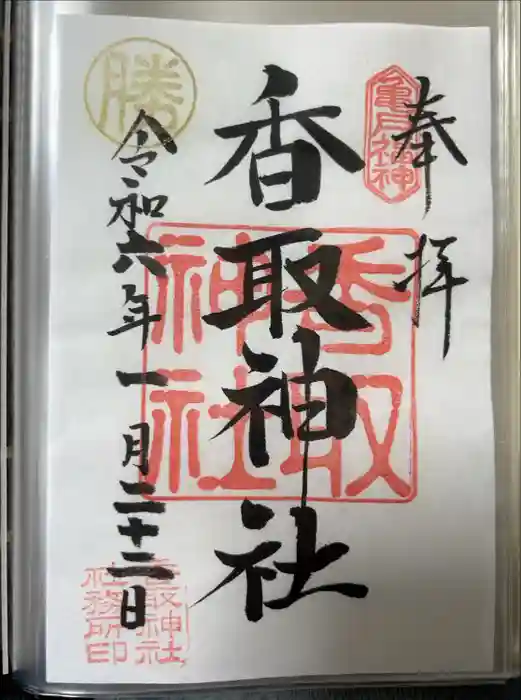 奉拝
亀戸福神
香取神社
香取神社
勝
令和六年一月二十二日
香取神社社務所印